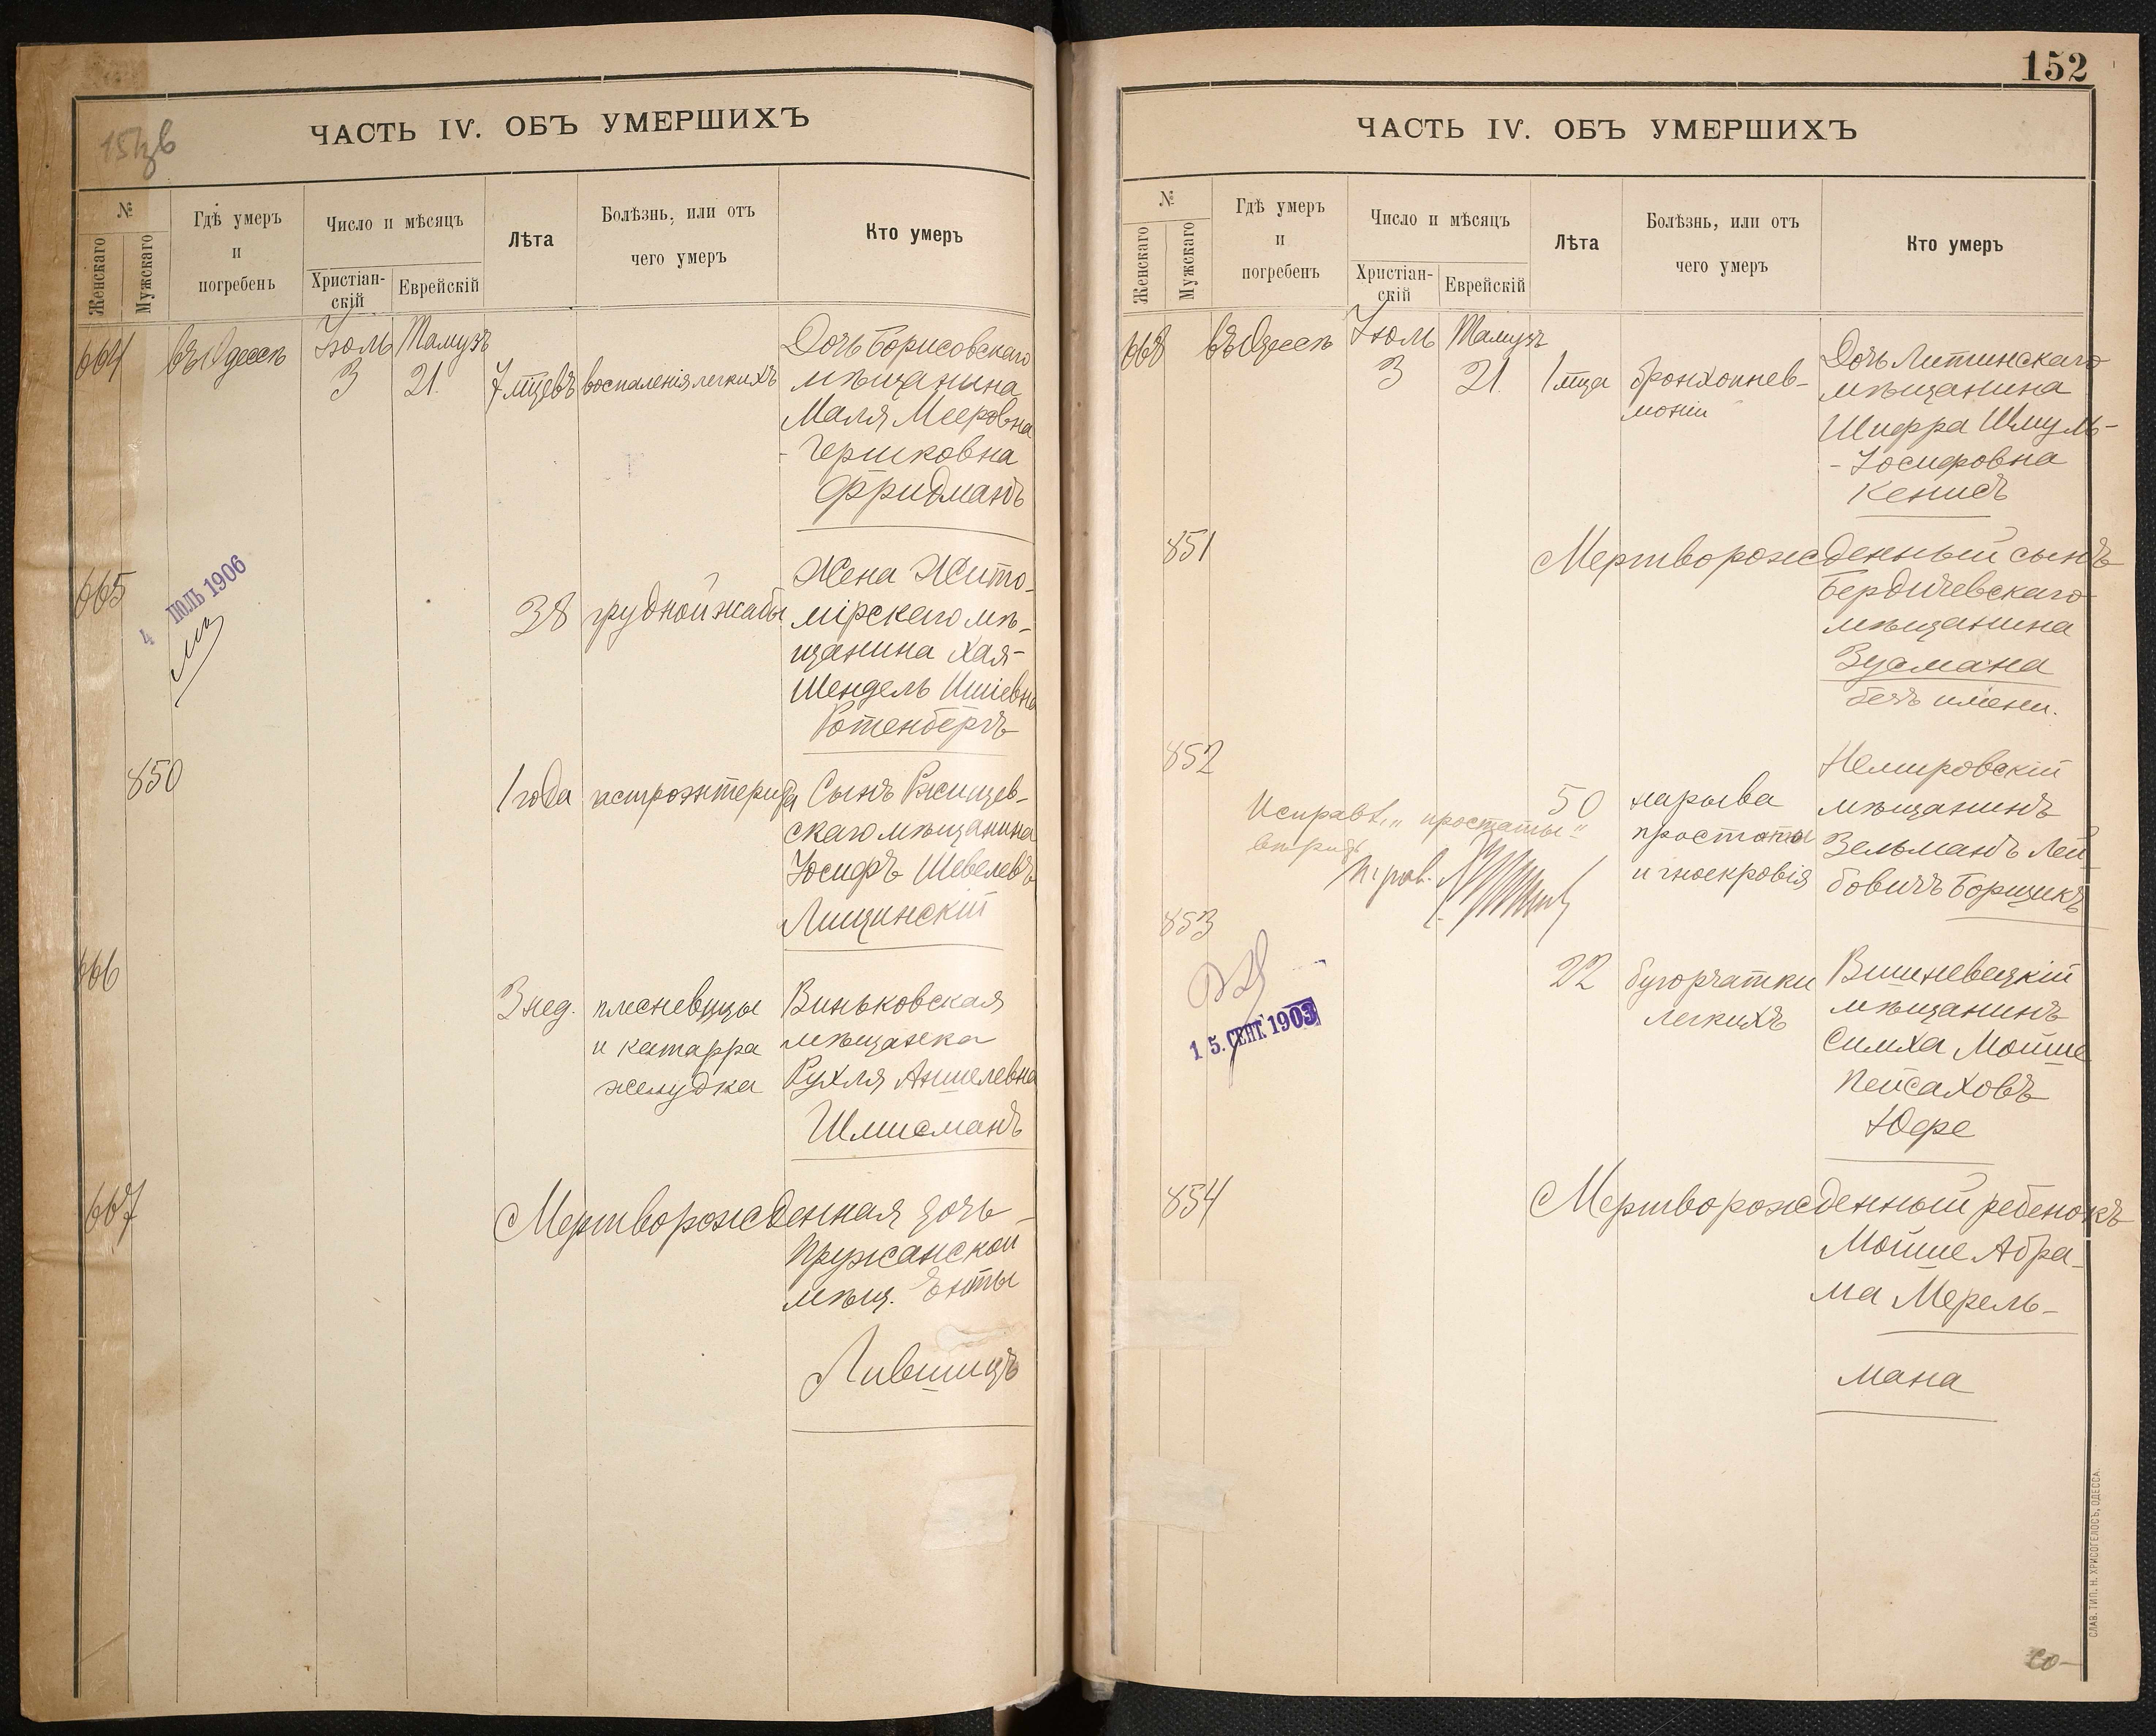 ЧАСТЬ IV. ОБЪ УМЕРШИХЪ
№
Женскаго
Мужскаго
Гдѣ умеръ
и
погребенъ
Число и мѣсяцъ
Христіан-
скій
Еврейскій
Лѣта
Болѣзнь, или отъ
чего умеръ
Кто умеръ
664
въ Одессѣ
Іюль
3
Тамузъ
21.
7 мцевъ
воспаленія легкихъ
Дочь Борисовскаго
мѣщанина
Маля Мееровна
- Гершковна
Фридманъ
665
4 ІЮЛЬ 1906
38
грудной жабы
Жена Жито-
мірскаго мѣ-
щанина Хая-
Шендель
Ротенбергъ
850
1 года
гастроэнтерита
Сынъ Ржищев-
скаго мѣщанина
Іосифъ Шевелевъ
Лищинскій
666
3 нед.
плесневицы
и катарра
желудка
Виньковская
мѣщанка
Рухля Аншелевна
Шлисманъ
667
Мертворожденная дочь
Пружанской
мѣщ. Енты
Лившицъ
152
ЧАСТЬ IV. ОБЪ УМЕРШИХЪ
№
Женскаго
Мужскаго
Гдѣ умеръ
и
погребенъ
Число и мѣсяцъ
Христіан-
скій
Еврейскій
Лѣта
Болѣзнь, или отъ
чего умеръ
Кто умеръ
668
въ Одессѣ
Іюль
3
Тамузъ
21.
1 мца
бронхопнев-
моніи
Дочь Литинскаго
мѣщанина
Шифра Шмуль-
- Іосифовна
Кенисъ
851
Мертворожденный сынъ
Бердичевскаго
мѣщанина
Зусмана
безъ имени.
852
Исправл. „простаты"
50
нарыва
простаты
и гноекровія
Немировскій
мѣщанинъ
Зельманъ Лей-
бовичъ Борщикъ
853
15. СЕНТ. 1903
22
бугорчатки
легкихъ
Вишневецкій
мѣщанинъ
Симха Мойше
Пейсаховъ
Юфе
854
Мертворожденный ребенокъ
Мойше Абра-
ма Мерель-
мана
СЛАВ. ТИП. Н. ХРИСОГЕЛОСЪ, ОДЕССА.